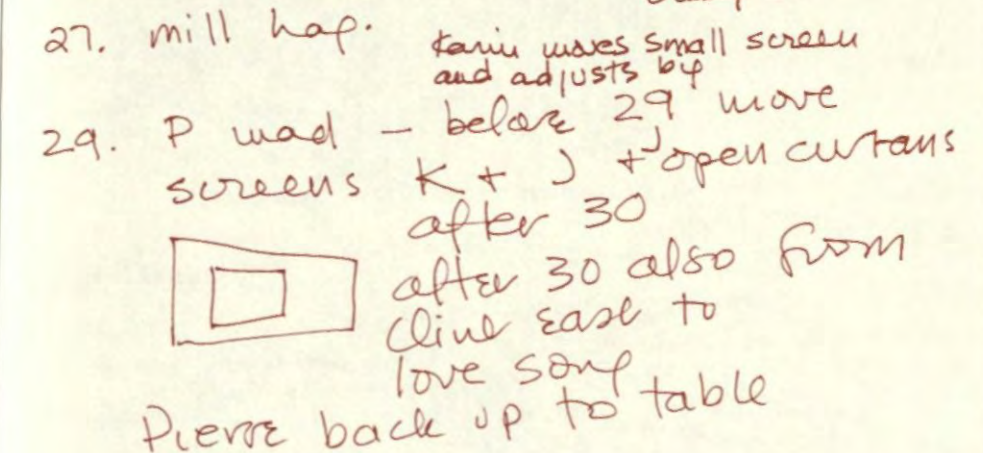 27. mill hap.
Karin moves small screen
and adjusts by
29. P mad - before 29 move
screens K + J + open curtans
after 30
after 30 also from
Cline ease to
love song
Pierre back up to table